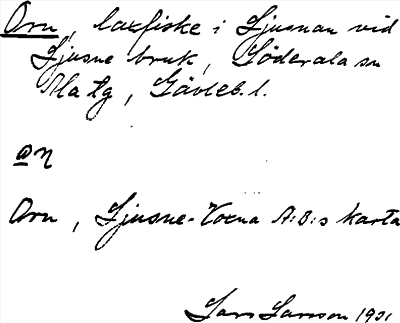 Oru, laxfiske i Ljusnan vid
Ljusne bruk, Söderala sn
Ala tg, Gävleb. l.
Oru, Ljusne-Voxna A:B:s karta
Lars Larsson 1921